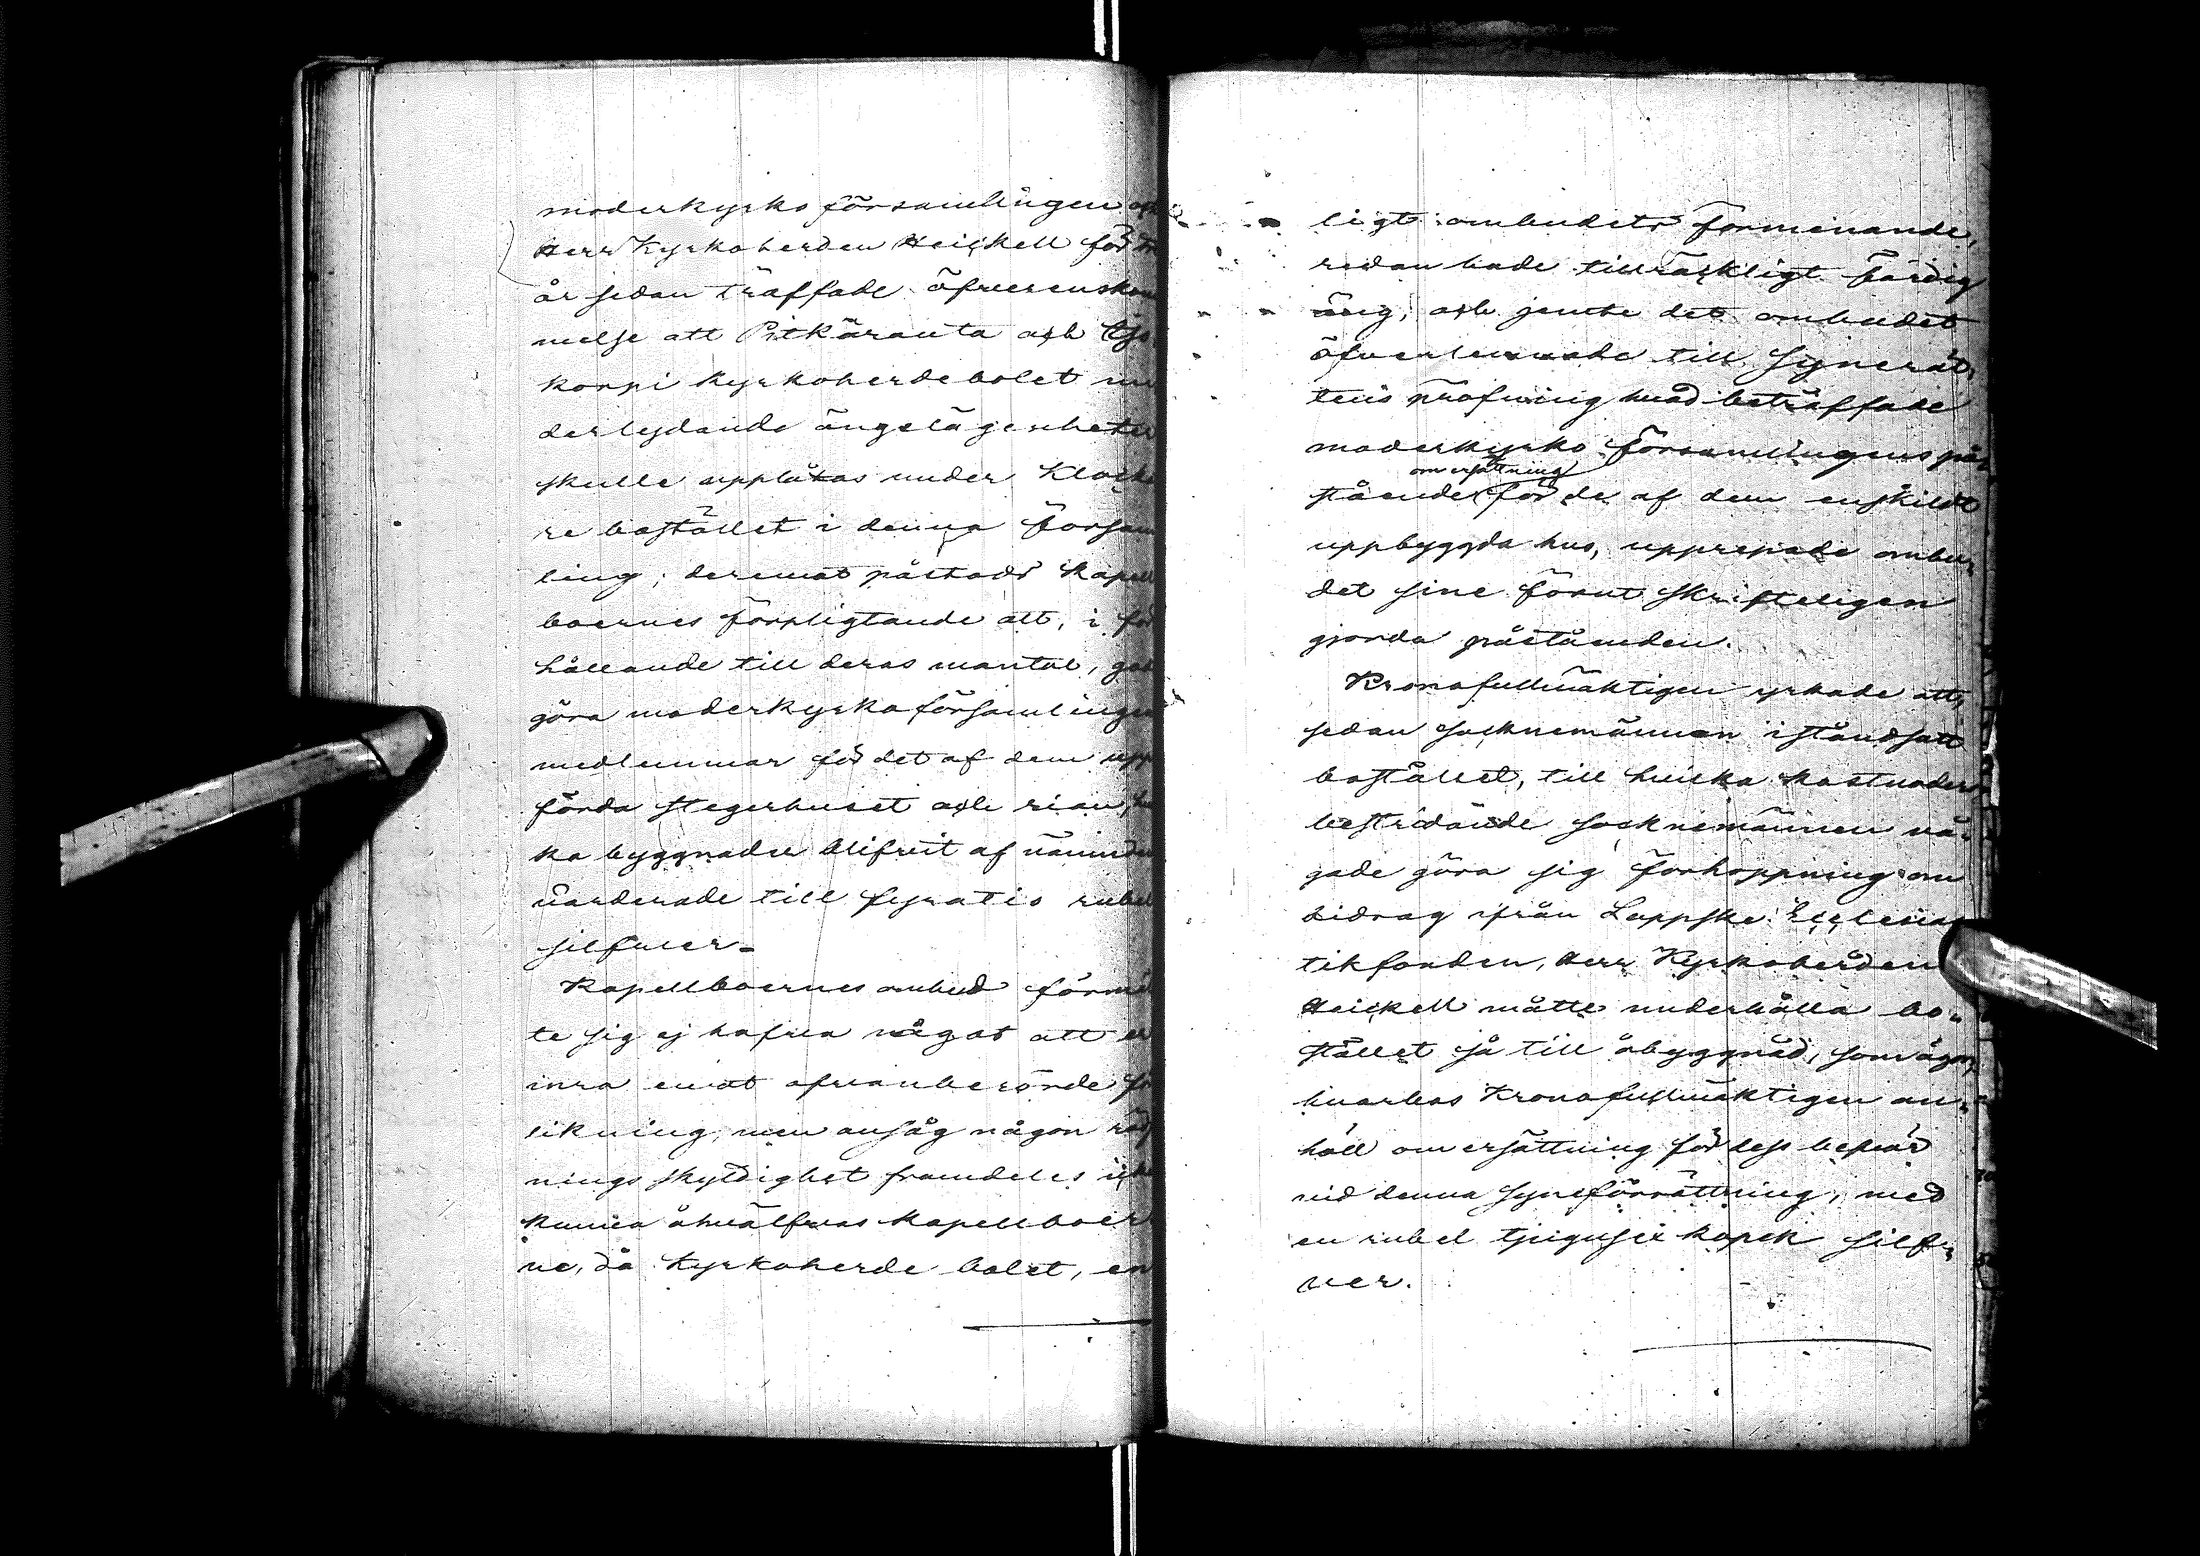 moderkyrko församlingen och
Herr Kyrkoherden Heickell för
år sedan träffade öfverenskom
melse att Pitkäranta och
korpi Kyrkoherdebolet un
derlydande ängelägenheter
skulle upplåtas under Klocka
re bostället i denna försam
ling; deremot påstods Kapell
boernes förpligtande att, i för
hållande till deras mantal, godt
göra moderkyrkoförsamlingens
medlemmar för det af dem upp
förda stegerhuset och rian,
ka byggnader blifvit af nämnden
värderade till fyratio rubel
silfver.
Kapellboernes ombud förmäl
te sig ej hafva något att er
inra emot ofvanberörde för
likning, men ansåg någon
nings skyldighet framdeles icke
kunna åhvälfvas kapellboer
ne, då Kyrkoherde bolet, en
ligt ombudets förmenande,
redan hade tillräckligt färdig
äng, och jemte det ombudet
öfverlemnade till Synerät,
tens pröfning hvad beträffade
moderkyrko församlingens på,
om ersättning
stående för de af dem enskildt
uppbyggda hus, upprepade ombu,
det sine förut skrifteligen
gjorda påståenden.
Kronofullmäktigen yrkade att,
sedan socknemännen iståndsatt
bostället, till hvilka kostnaders
bestridande socknemännen vå,
gade göra sig förhoppning om
bidrag ifrån Lappska Ecclesias
tikfonden, Herr Kyrkoherden
Heickell måtte underhålla bo,
stället så till åbyggnad, som ägor,
hvarhos Kronofullmäktigen an,
höll om ersättning för dess besvär
vid denna syneförrättning, med
en rubel tjugusex kopek silf,
ver.